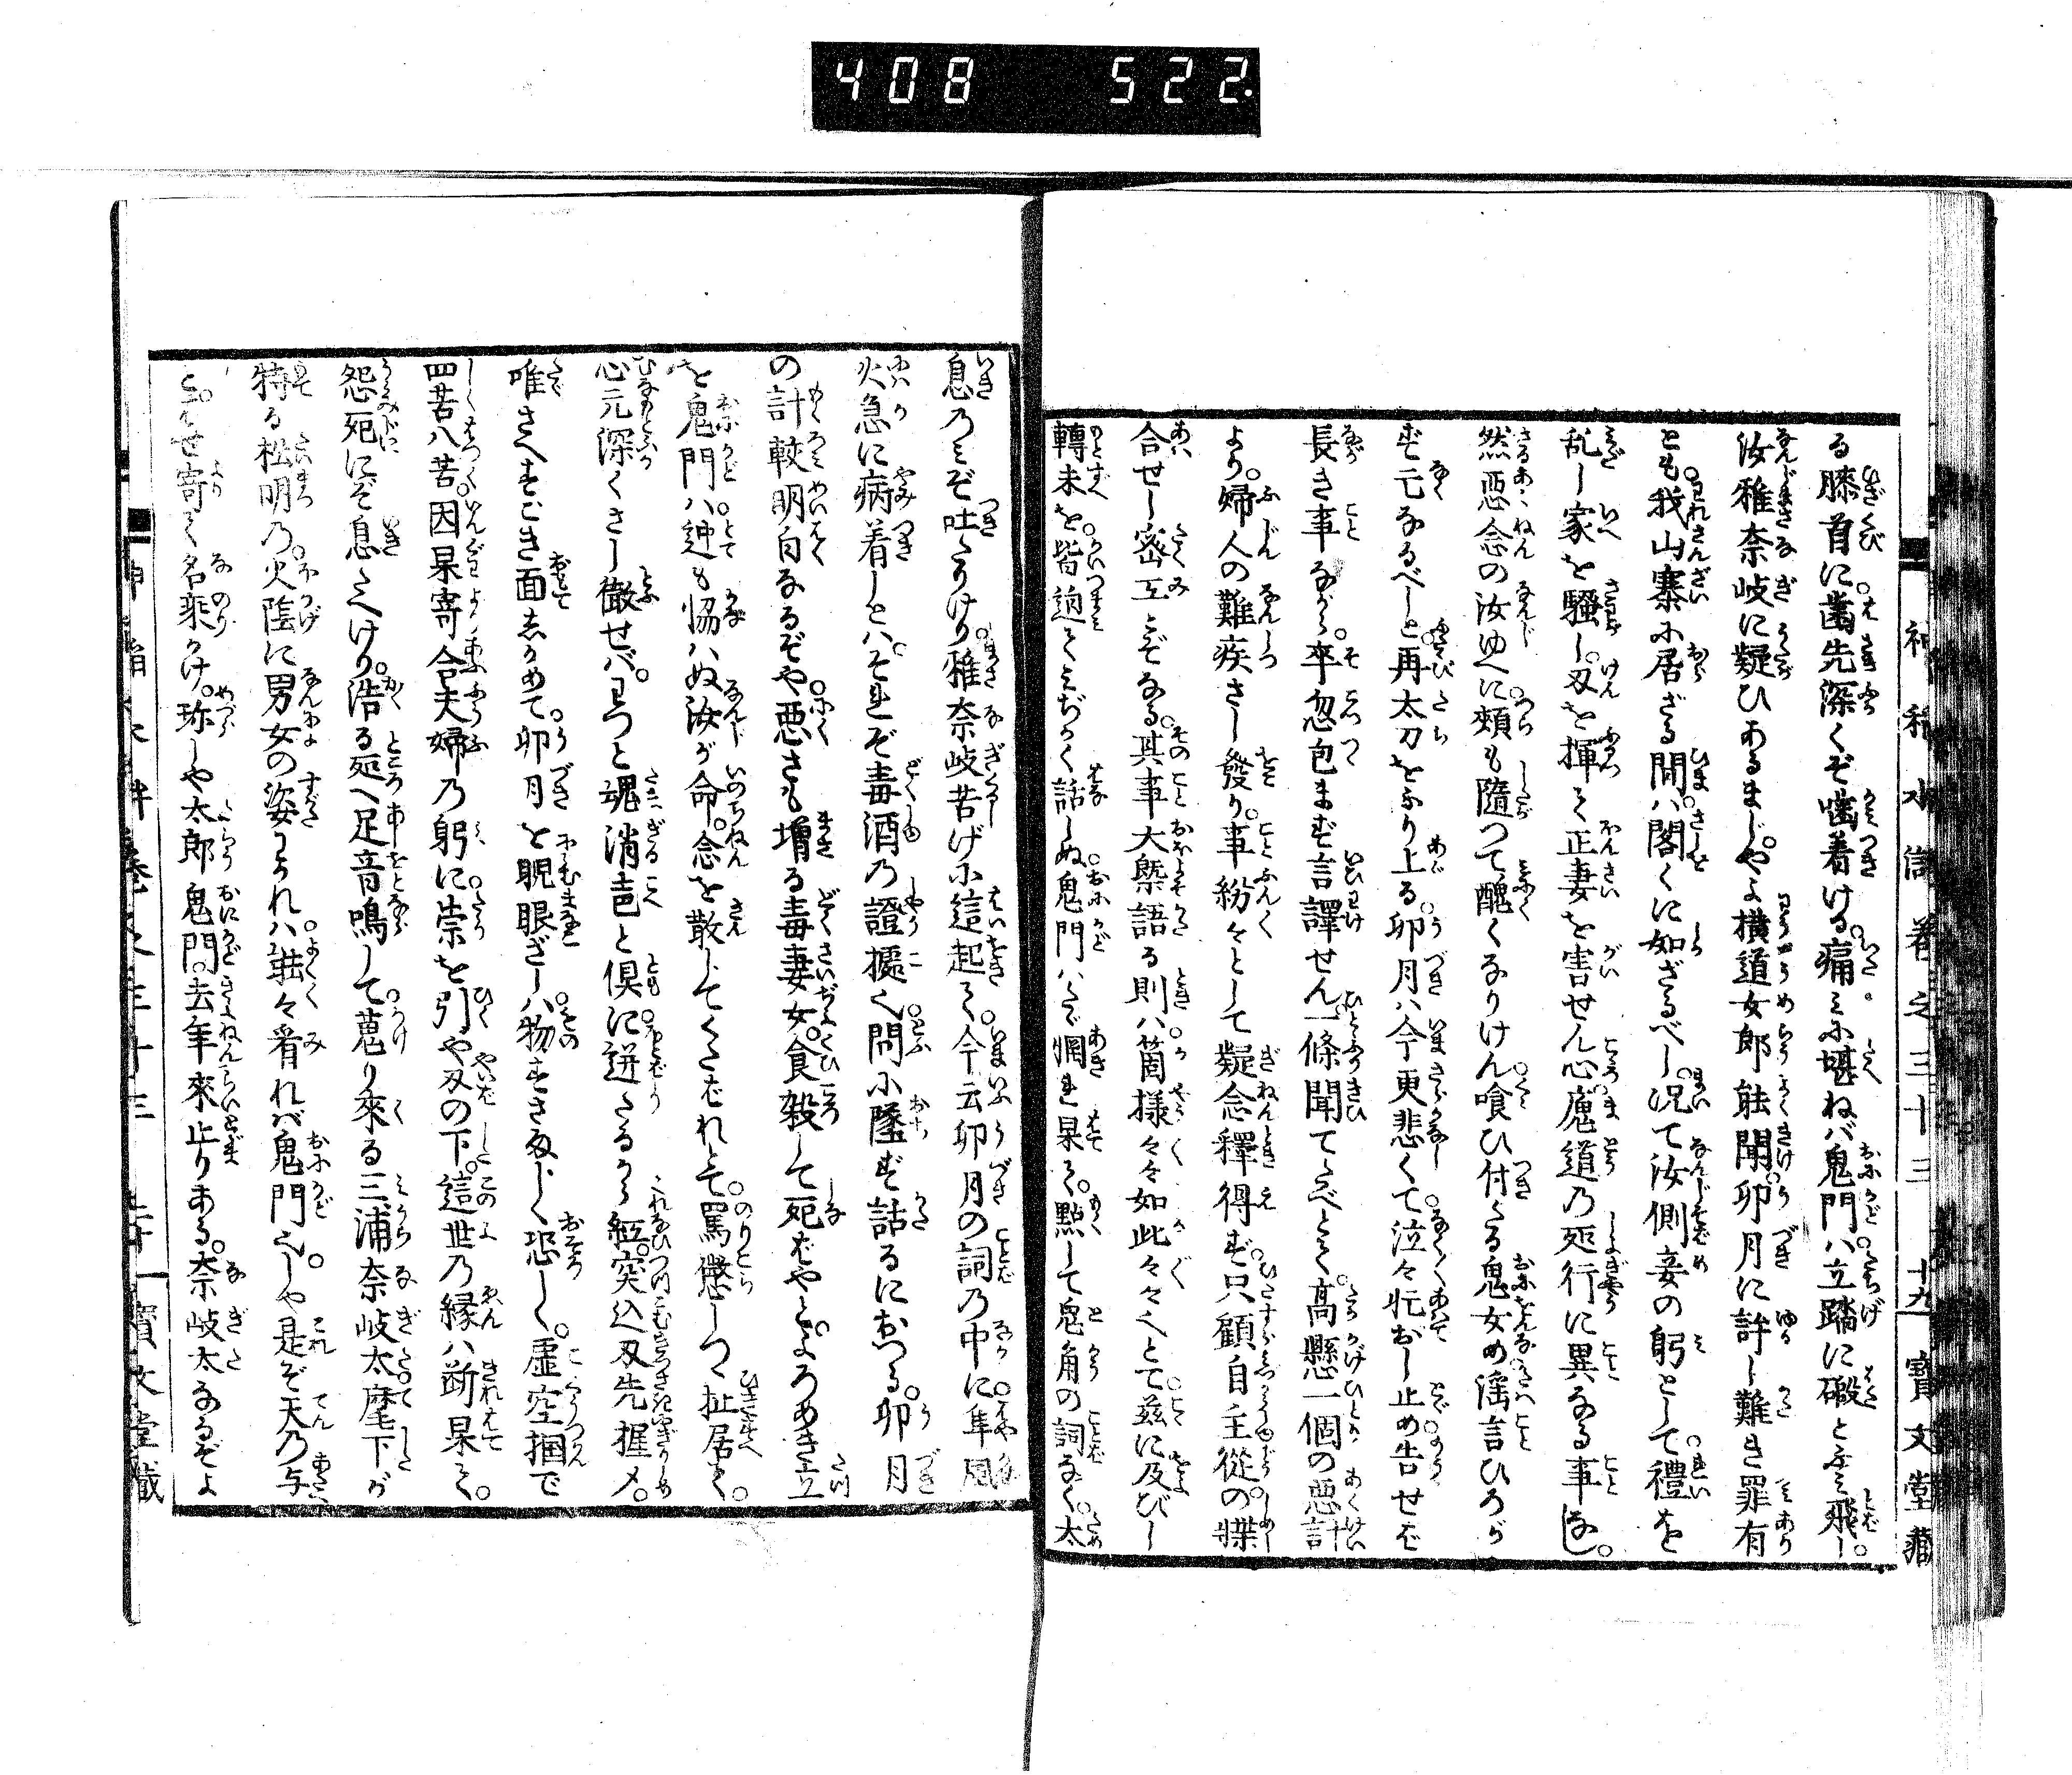 408 522.
神稲水滸傳巻之三十三 十九 寶文堂藏
る膝首に。齒先深くぞ噛着ける。痛みに堪ねバ鬼門ハ。立踏に礑とふミ飛し。
汝雅奈岐に疑ひあるまじ。やよ横道女郎能聞。卯月に許し難き罪有
とも。我山寨に居ざる間ハ。閣くに如ざるべし。况て汝側妾の躬として。禮を
乱し家を騒し。刃を揮て正妻を害せん心。魔道乃所行に異なる事なし。
然悪念の汝ゆへに。頬も随つて醜くなりけん。喰ひ付たる鬼女め。滛言ひろが
ば亡なるべしと。再太刀をふり上る。卯月ハ今更悲くて。泣々押止め。告せば
長き事ながら。卒忽包まず言譯せん。一條聞てたべとて。高懸一個の悪計
より。婦人の難疾さし發り。事紛々として疑念釋得ず。只顧自主從の。牒
合せし密工ぞなる。其事大槩語る則ハ。箇様々々如此々々とて。茲に及びし
轉末を。皆迫てミぢかく話しぬ。鬼門ハたゞ惘れ果て。黙して兎角の詞なく。太
息乃ミぞ吐たりけり。雅奈岐苦げに這起て。今云卯月の詞乃中に。隼風
火急に病着しとハ。それぞ毒酒乃證據く。問に墜ず話るにおつる。卯月
の計較明白なるぞや。悪さも増る毒妻女。食殺して死ばやと。よろめき立
を鬼門ハ。迚も恊ハぬ汝が命。念を散じてくたばれとて。罵懲しつゝ扯居て。
心元深くさし徹せバ。わつと魂消声と倶に。迸たる紅。突込刃先握〆。
唯さへすごき面しかめて。卯月を睨眼ざしハ。物すさまじく恐しく。虚空掴で
四苦八苦。因果寄合夫婦乃躬に。祟を引や刃の下。這世乃縁ハ断果て。
怨死にぞ息たへけり。浩る処へ足音鳴して。駈り來る三浦奈岐太麾下が
特る松明乃。火陰に男女の姿うつれハ。能々看れバ鬼門也しや。是ぞ天乃与
と。馳寄て名乘かけ。珎しや太郎鬼門。去年來止りある。奈岐太なるぞよ